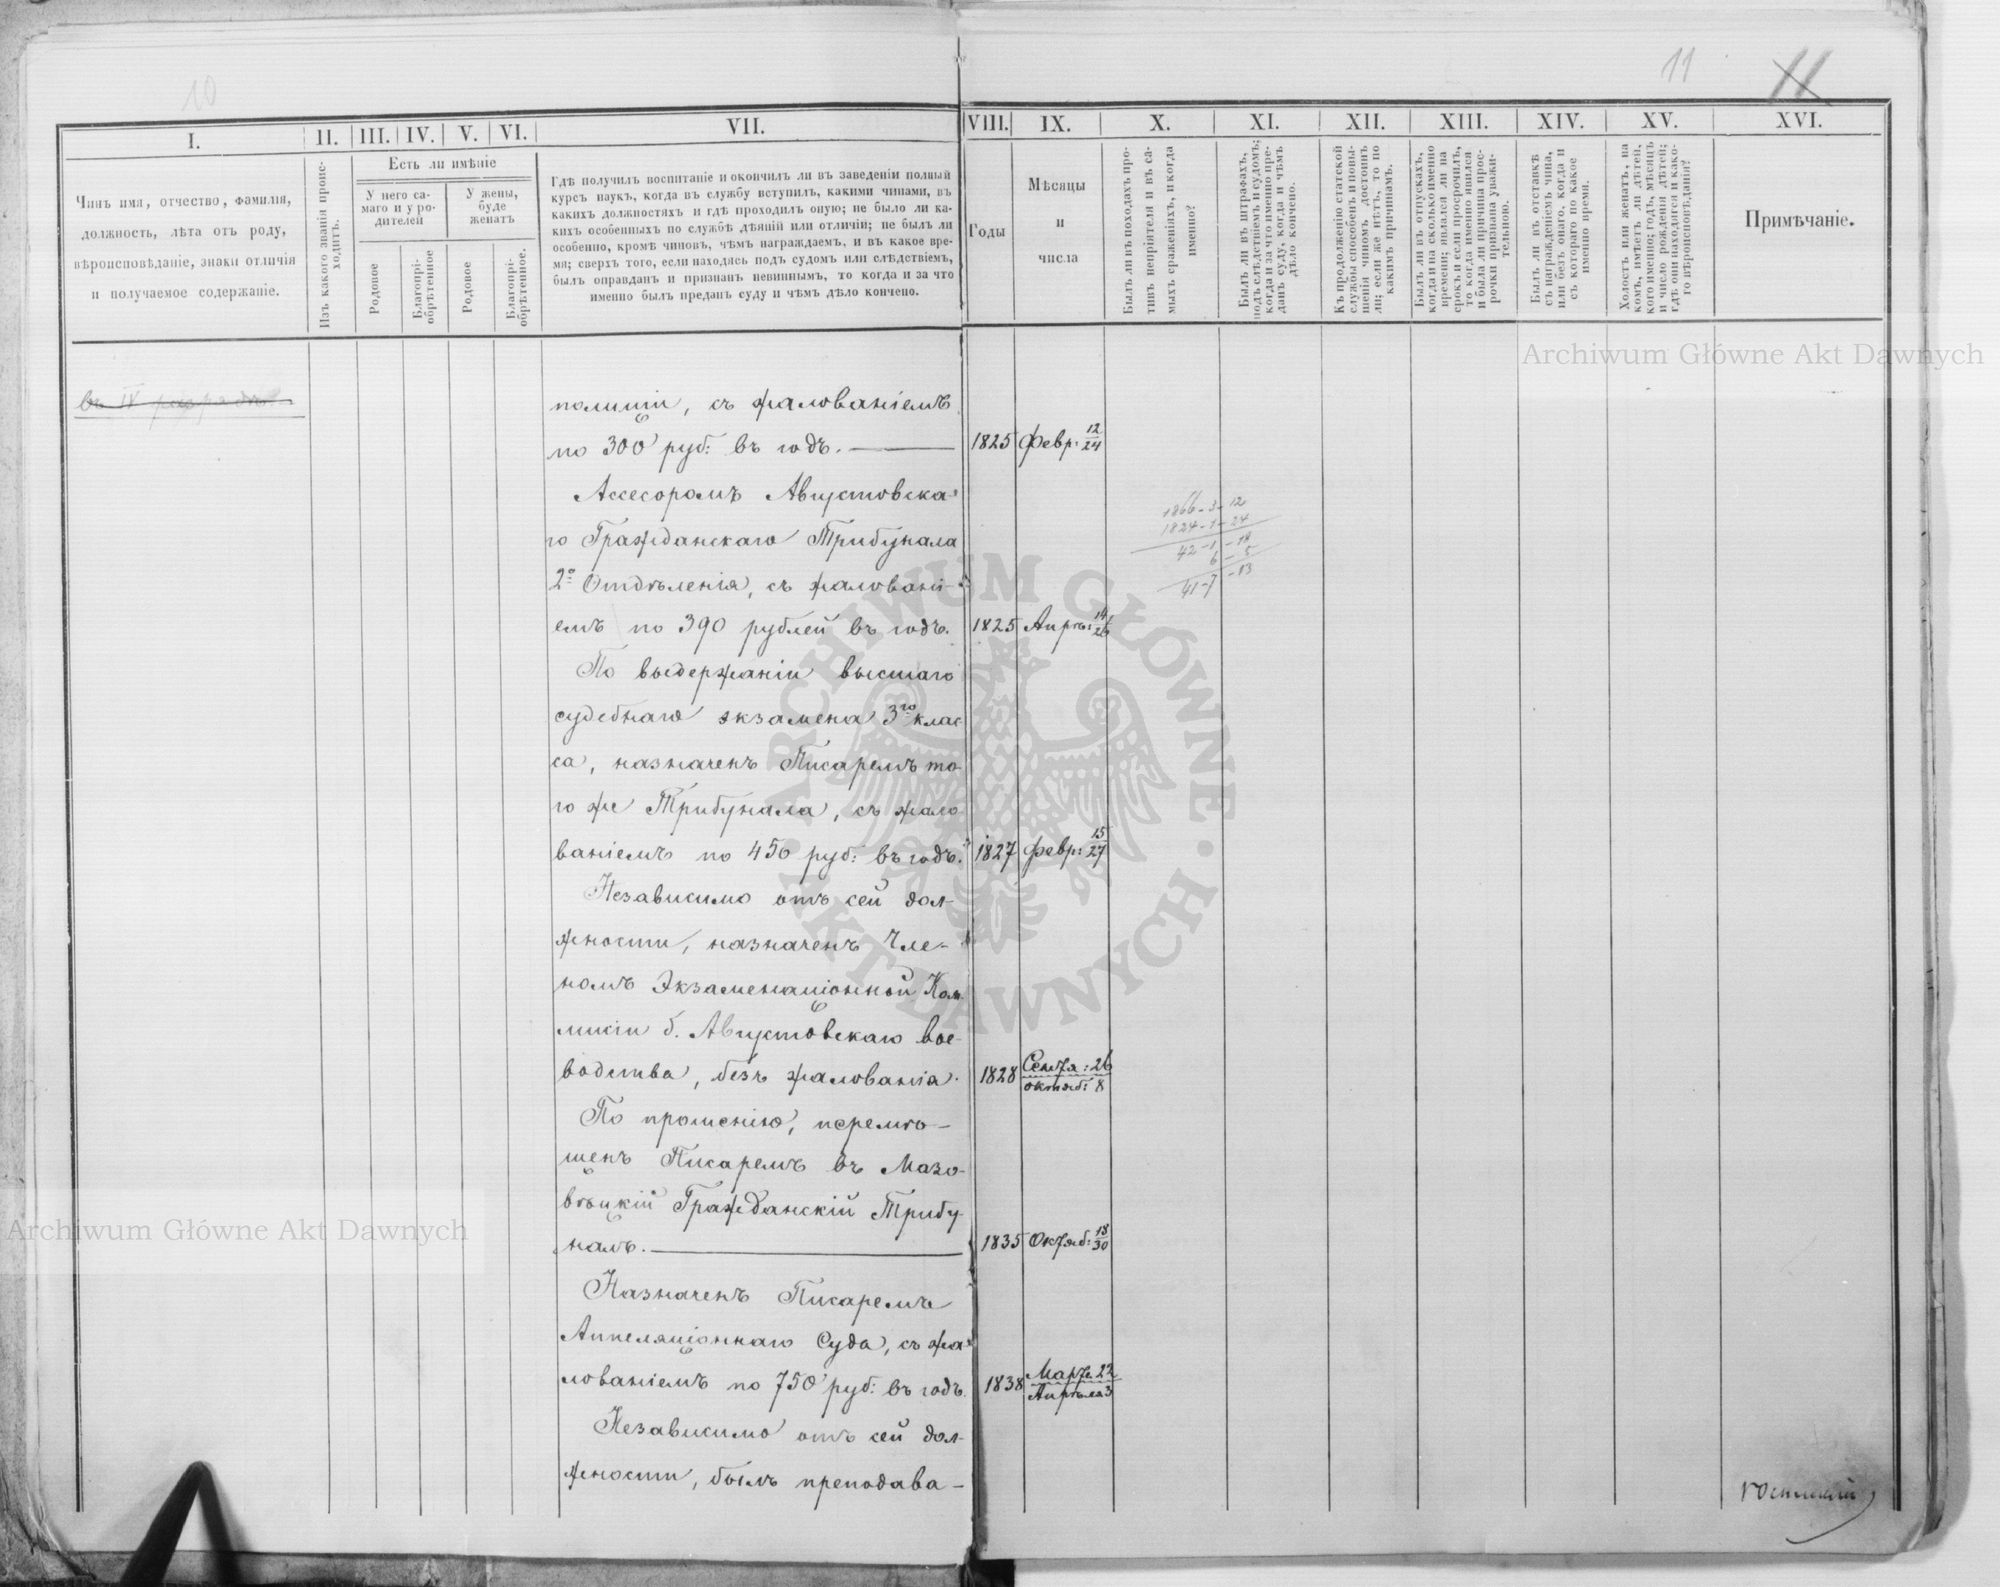 10
11
11
I.
II.
III.
IV.
V.
VI.
VII.
VIII.
IX.
X.
XI.
XII.
XIII.
XIV.
XV.
XVI.
Чинъ имя, отчество, фамилія,
должность, лѣта отъ роду,
вѣроисповѣданіе, знаки отличія
и получаемое содержаніе.
Изъ какого званія проис-
ходитъ.
Есть ли имѣніе
У него са-
маго и у ро-
дителей
У жены,
буде
женатъ
Родовое
Благопрі-
обрѣтенное
Родовое
Благопрі-
обрѣтенное.
Гдѣ получилъ воспитаніе и окончилъ ли въ заведеніи полный
курсъ наукъ, когда въ службу вступилъ, какими чинами, въ
какихъ должностяхъ и гдѣ проходилъ оную; не было ли ка-
кихъ особенныхъ по службѣ дѣяній или отличій; не былъ ли
особенно, кромѣ чиновъ, чѣмъ награждаемъ, и въ какое вре-
мя; сверхъ того, если находясь подъ судомъ или слѣдствіемъ,
былъ оправданъ и признанъ невиннымъ, то когда и за что
именно былъ преданъ суду и чѣмъ дѣло кончено.
Годы
Мѣсяцы
и
числа
Былъ ли въ походахъ про-
тивъ непріятеля и въ са-
мыхъ сраженіяхъ, и когда
именно?
Былъ ли въ штрафахъ,
подъ слѣдствіемъ и судомъ;
когда и за что именно пре-
данъ суду, когда и чѣмъ
дѣло кончено.
Къ продолженію статской
службы способенъ и повы-
шенія чиномъ достоинъ
ли; если же нѣтъ, то по
какимъ причинамъ.
Былъ ли въ отпускахъ,
когда и на сколько именно
времени; явался ли на
срокъ и если просрочилъ,
то когда именно явился
и была ли причина прос-
рочки признана уважи-
тельною.
Былъ ли въ отставкѣ
съ награжденіемъ чина,
или безъ онаго, когда и
съ котораго по какое
именно время.
Холостъ или женатъ, на
комъ, имѣетъ ли дѣтей,
кого именно; годъ, мѣсяцъ
и число рожденія дѣтей;
гдѣ они находятся и како-
го вѣроисповѣданія?
Примѣчаніе.
Archiwum Główne Akt Dawnych
въ IV разрядѣ
полиціи, съ жалованіемъ
по 300 руб: въ годъ. 1825 Февр: 12/24
Ассесоромъ Августовска-
го Гражданскаго Трибунала
2º Отдѣленія, съ жаловані-
емъ по 390 рублей въ годъ. 1825 Апрѣ: 14/26
1866-3-12
1824-1-24
42-1-18
6-5
41-7-13
По выдержаніи высшаго
судебнаго экзамена 3го клас-
са, назначенъ Писаремъ то-
го же Трибунала, съ жало-
ваніемъ по 450 руб: въ годъ. 1827 Февр: 15/27
Независимо отъ сей дол-
жности, назначенъ Чле-
номъ Экзаменаціонной Ком-
мисіи б. Августовскаго вое-
водства, безъ жалованія. 1828 Сентя: 26
октяб: 8
По прошенію, перемѣ-
щенъ Писаремъ въ Мазо-
вѣцкій Гражданскій Трибу-
налъ. 1835 Октяб: 18/30
Назначенъ Писаремъ
Аппеляціоннаго Суда, съ жа-
лованіемъ по 750 руб: въ годъ. 1838 Марта 22
Апрѣля 3
Независимо отъ сей дол-
жности, былъ преподава-
ARCHIWUM GŁÓWNE AKT DAWNYCH
Archiwum Główne Akt Dawnych